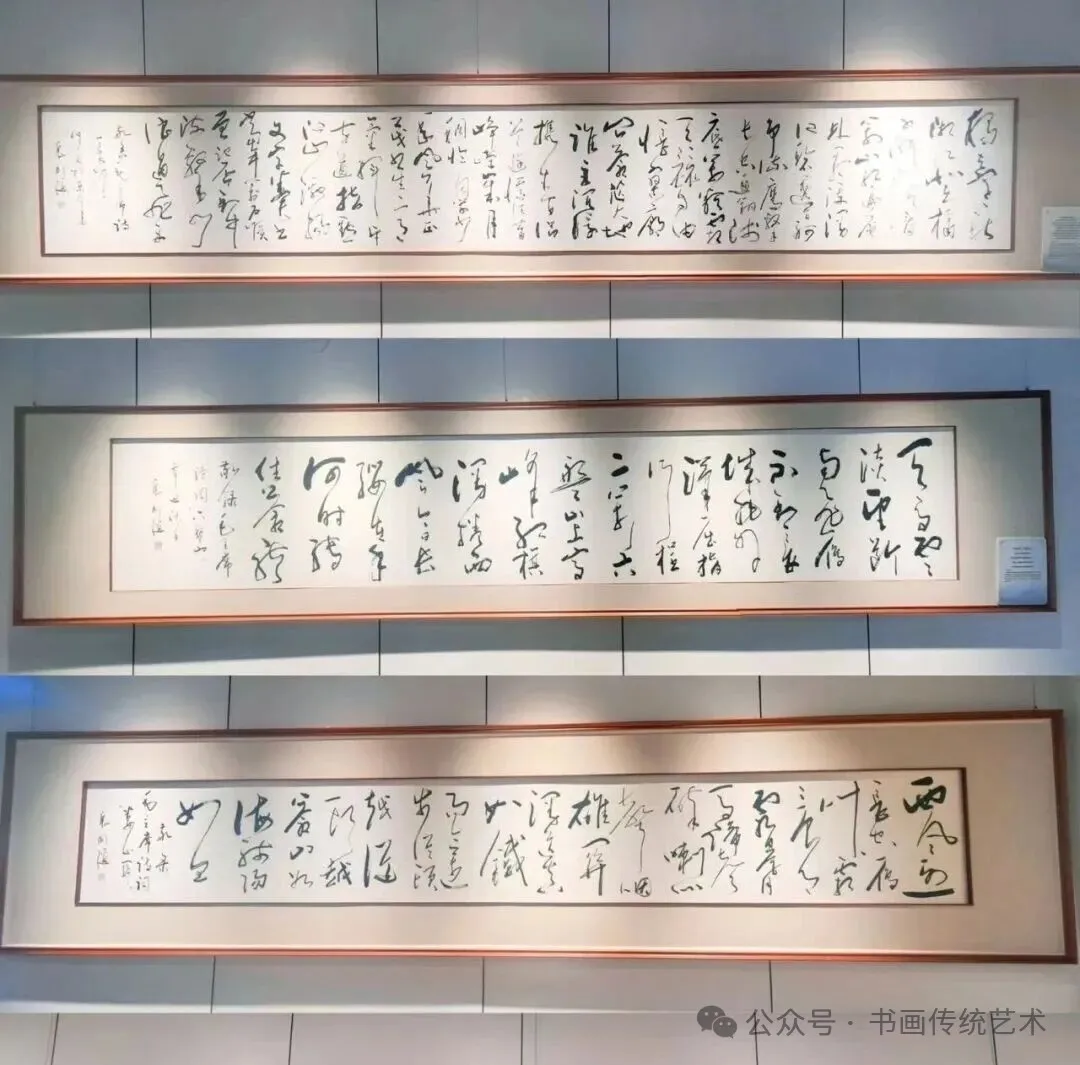 独立寒秋
湘江北去橘
子洲头看
万山红遍层
林尽染漫
江碧透百舸
争流鹰击
长空鱼翔浅
底万类霜
天竞自由
怅寥廓
问苍茫大地
谁主沉浮
携来百侣
曾游忆往昔
峥嵘岁月
稠恰同学少
年风华正
茂书生意
气挥斥方
遒指点
江山激扬
文字粪土
当年万户侯
曾记否到中
流击水
浪遏飞舟
天高云
淡望断
南飞雁
不到长
城非好
汉屈指
行程
二万六
盘山上高
峰红旗
漫卷西
风今日长
缨在手
何时缚
住苍龙
敬录毛主席
清平乐六盘山
西风烈
长空雁
叫霜
晨月
霜晨月
马蹄声
碎喇叭
声咽
雄关
漫道真
如铁
而今迈
步从头
越从
头越
苍山如
海残阳
如血
毛主席诗词
娄山关
公众号·书画传统艺术